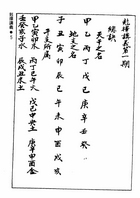 乾擇講義第一期
總訣
天干之名
甲乙丙丁戊己庚辛壬癸
地支之名
子丑寅卯辰巳午未申酉戌亥
干支所屬
甲乙寅卯木 丙丁巳午火 戊己中央土 庚辛申酉金
壬癸亥子水 辰戌丑未土